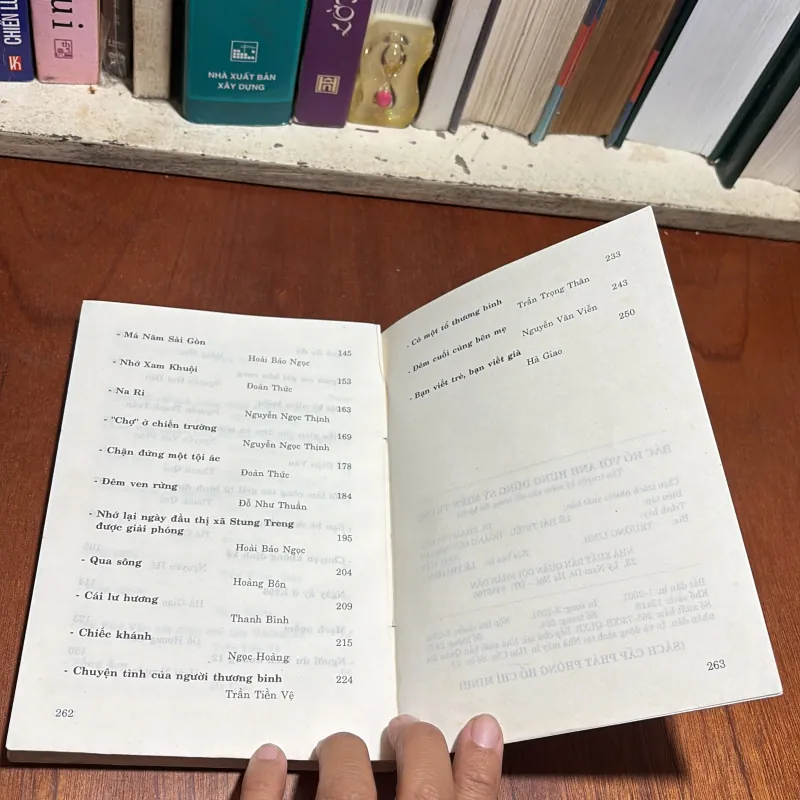 CHIẾN LƯ
ui
NHÀ XUẤT BẢN
XÂY DỰNG
- Má Năm Sài Gòn 145
Hoài Bảo Ngọc
- Nhớ Xam Khuội 153
Đoán Thức
- Na Rì 163
Nguyễn Ngọc Thịnh
- "Chợ" ở chiến trường 169
Nguyễn Ngọc Thịnh
- Chặn đứng một tội ác 178
Đoàn Thức
- Đêm ven rừng 184
Đỗ Như Thuần
- Nhớ lại ngày đầu thị xã Stung Treng
được giải phóng 195
Hoài Bảo Ngọc
- Qua sông 204
Hoàng Bôn
- Cái lư hương 209
Thanh Bình
- Chiếc khánh 215
Ngọc Hoàng
- Chuyện tình của người thương binh 224
Trần Tiền Vệ
262
- Có một tổ thương binh 233
Trần Trọng Thân
- Đêm cuối cùng bên mẹ 243
Nguyễn Văn Viễn
- Bạn viết trẻ, bạn viết già 250
Hà Giao
263